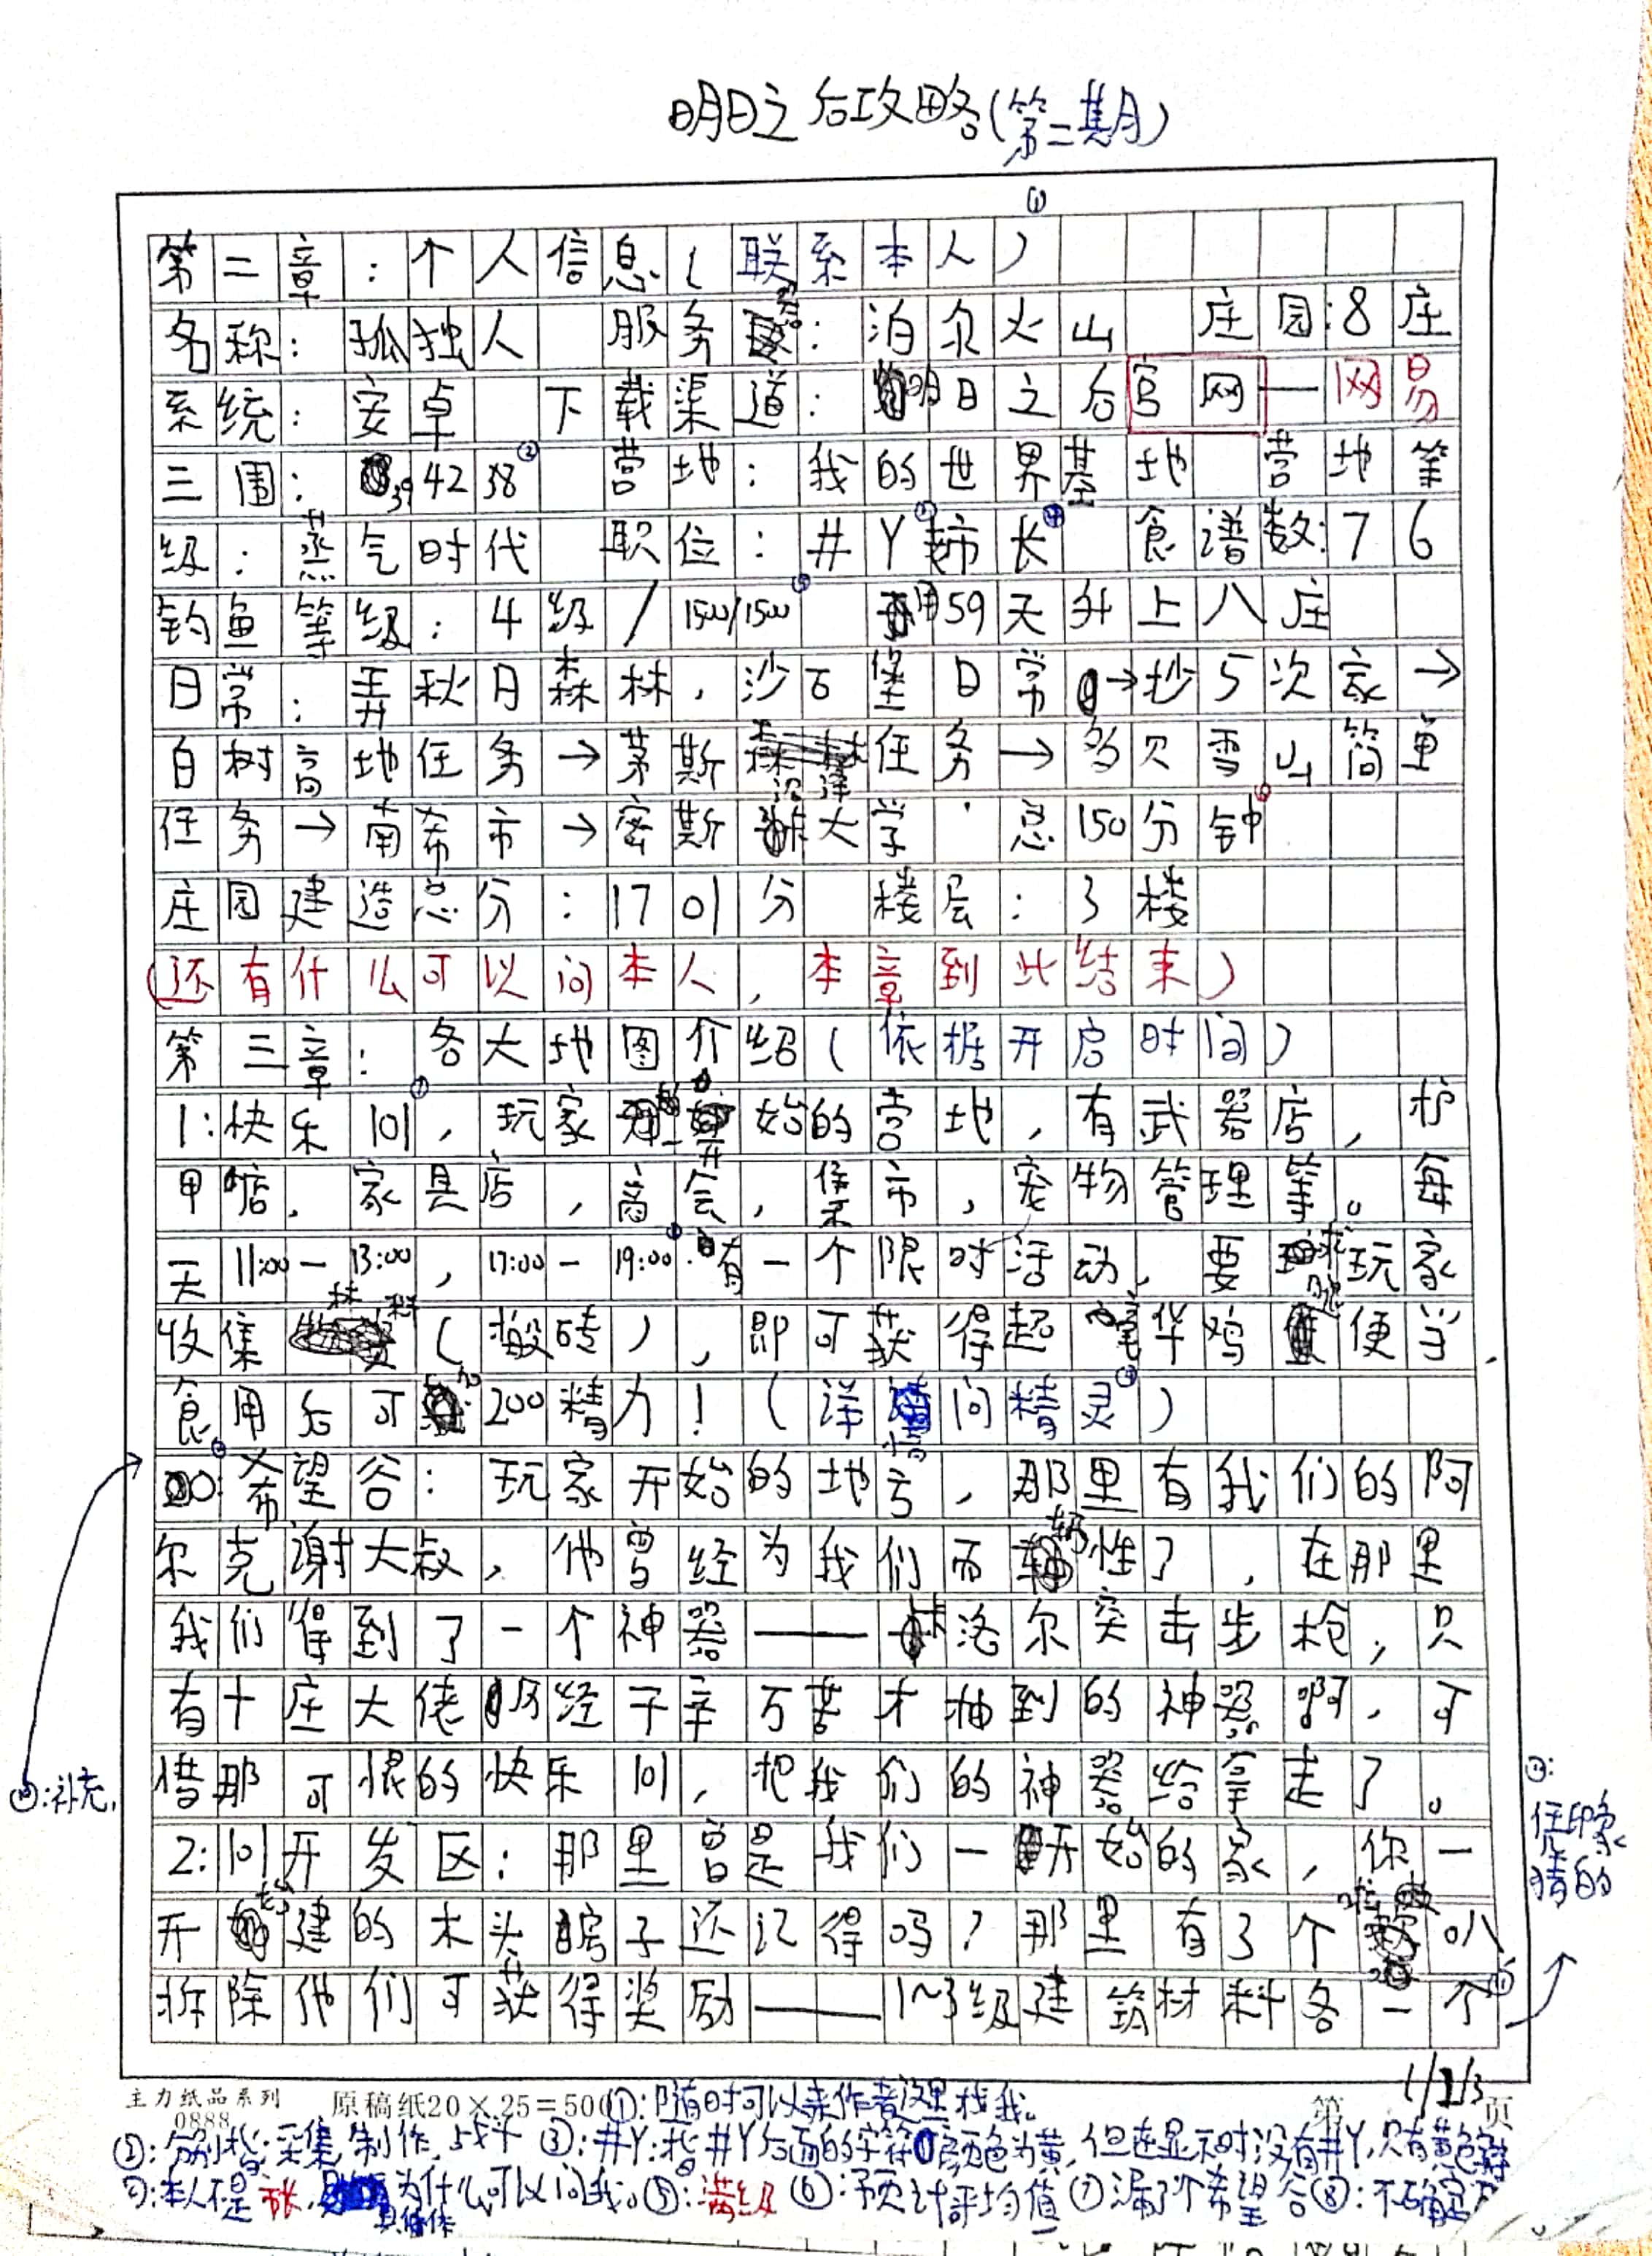 明日之后攻略(第二期)
①
第二章:个人信息(联系本人)
名称:孤独人 服务器:泊尔火山 庄园:8庄
系统:安卓 下载渠道:明日之后官网—网易
三围:39 42 38② 营地:我的世界基地 营地等
级:蒸气时代 职位:#Y③市长④ 食谱数:76
钓鱼等级:4级/1500/1500⑤ 用59天升上八庄
日常:弄秋日森林,沙石堡日常→抄5次家→
白树高地任务→茅斯沼泽任务→多贝雪山简单
任务→南希市→密斯卡大学 总150分钟⑥
庄园建造总分:1701分 楼层:3楼
(还有什么可以问本人,本章到此结束)
第三章:各大地图介绍(依据开启时间)
1:快乐101⑦,玩家一开始的营地,有武器店,护
甲店,家具店,商会,集市,宠物管理等。每
天11:00—13:00,17:00—19:00⑧有一个限时活动,要求玩家
收集材料(搬砖),即可获得超豪华鸡腿便当,
食用后可加200精力!(详情问精灵⑨)
⑩希望谷:玩家开始的地方,那里有我们的阿
尔克谢大叔,他曾经为我们而牺性了,在那里
我们得到了一个神器——卡洛尔突击步枪,只
有十庄大佬历经千辛万苦才抽到的神器啊,可
惜那可恨的快乐101,把我们的神器给拿走了。
⑩:补充,
2:101开发区:那里曾是我们一开始的家,你一
开始建的木头房子还记得吗?那里有了个
拆除他们可获得奖励——1~3级建筑材料各一个⑪
凭印象
猜的
1/1/3
主力纸品系列
0888
原稿纸20×25=500
第 页
①:随时可以来作者这里找我。
②:分别指:采集,制作,战斗 ③:#Y:指#Y后面的字符颜色为黄,但在显示时没有#Y,只有黄色
④:本人不是市长,为什么可以问我。⑤:满级 ⑥:预计平均值 ⑦漏了个希望谷⑧:不确定